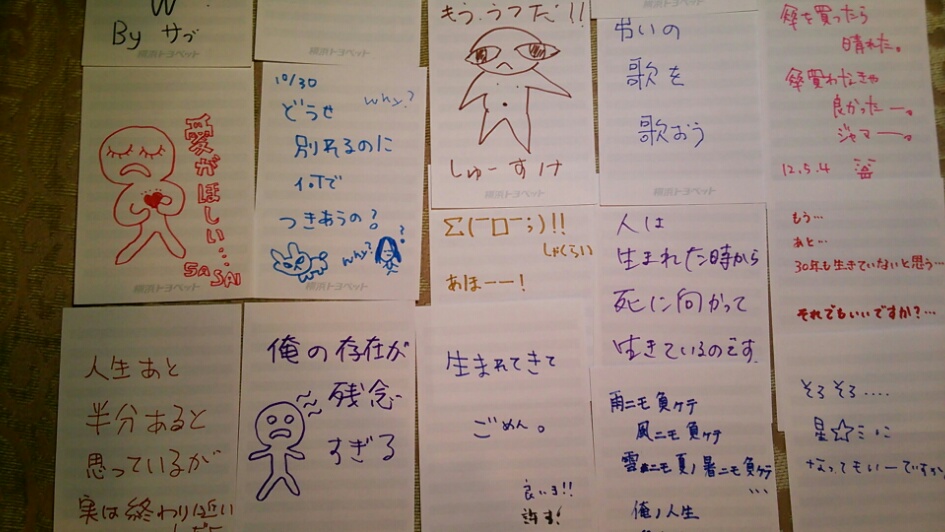 By サブ
横浜トヨペット
横浜トヨペット
もう、うつだ!!
しゅーすけ
横浜トヨペット
弔いの
歌を
歌おう
横浜トヨペット
傘を買ったら
晴れた。
傘買わなきゃ
良かったー。
ジャマー。
12.5.4
愛がほしい…
SASAI
横浜トヨペット
10/30
why?
どうせ
別れるのに
つきあうの?
why?
?
横浜トヨペット
Σ(￣ロ￣;)!!
しゃくらい
あほーー!
人は
生まれた時から
死に向かって
生きているのです.
もう…
あと…
30年も生きていないと思う…
それでもいいですか?…
人生あと
半分あると
思っているが
実は終わり近い
俺の存在が
残念
すぎる
生まれてきて
ごめん。
良いよ!!
許す!
雨ニモ負ケテ
風ニモ負ケテ
雪ニモ夏ノ暑ニモ負ケテ
…
俺ノ人生
そろそろ….
星☆ミに
なってもいーですか